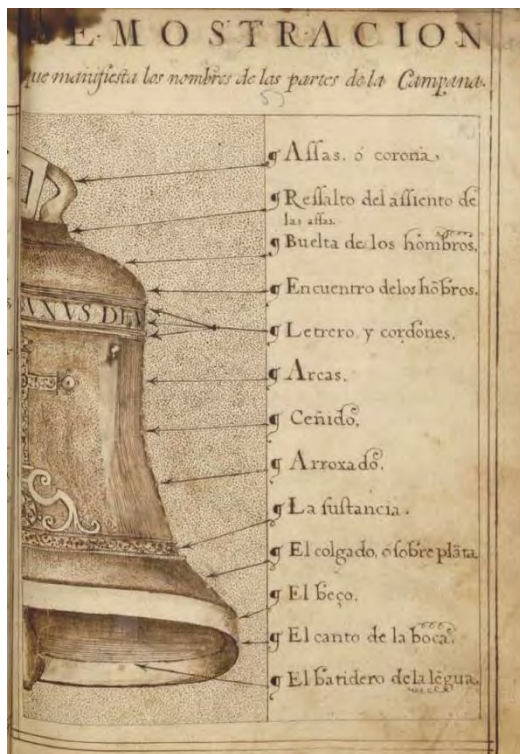 DEMOSTRACION
que manifiesta los nombres de las partes de la Campana.
¶ Assas. ó corona.
¶ Ressalto del assiento de
las assas.
¶ Buelta de los hombros.
¶ Encuentro delos hõbros.
ANVS DEM
¶ Letrero y cordones.
¶ Arcas.
¶ Ceñido.
¶ Arroxado.
¶ La sustancia.
¶ El colgado, o sobre plãta
¶ El beço.
¶ El canto de la boca.
¶ El batidero de la lẽgua.